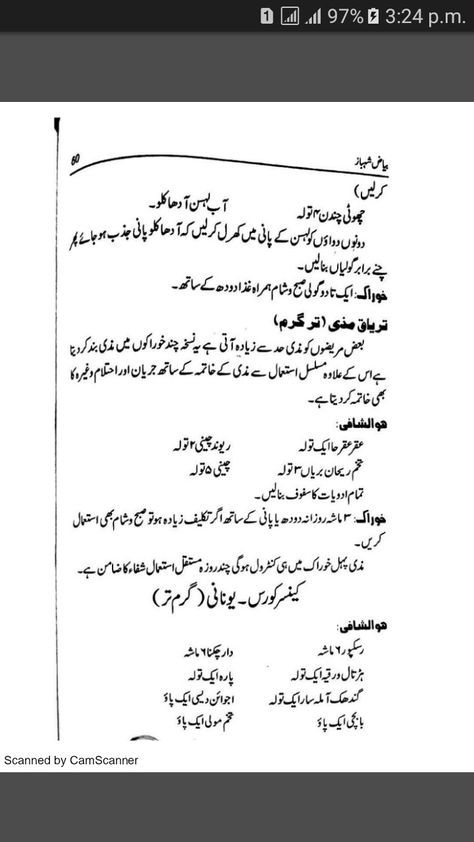 1 97% 3:24 p.m.
بیاض شہباز 60
کرلیں)
چھوٹی چندن ۴ تولہ آب لہسن آدھا کلو۔
دونوں دواؤں کو لہسن کے پانی میں کھرل کرلیں کہ آدھا کلو پانی جذب ہو جائے پھر
چنے برابر گولیاں بنالیں۔
خوراک: ایک تا دو گولی صبح و شام ہمراہ غذا دودھ کے ساتھ۔
تریاق مذی (تر گرم)
بعض مریضوں کو مذی حد سے زیادہ آتی ہے یہ نسخہ چند خوراکوں میں مذی بند کر دیتا
ہے اس کے علاوہ مسلسل استعمال سے مذی کے خاتمہ کے ساتھ جریان اور احتلام وغیرہ کا
بھی خاتمہ کر دیتا ہے۔
ھوالشافی:
عقرقرحا ایک تولہ ریوند چینی ۲ تولہ
تخم ریحان بریاں ۳ تولہ چینی ۵ تولہ
تمام ادویات کا سفوف بنالیں۔
خوراک: ۳ ماشہ روزانہ دودھ یا پانی کے ساتھ اگر تکلیف زیادہ ہو تو صبح و شام بھی استعمال
کریں۔
مذی پہلی خوراک میں ہی کنٹرول ہوگی چند روزہ مستقل استعمال شفاء کا ضامن ہے۔
کینسر کورس۔ یونانی (گرم تر)
ھوالشافی:
رسکپور ۶ ماشہ دار چکنا ۶ ماشہ
ہڑتال ورقیہ ایک تولہ پارہ ایک تولہ
گندھک آملہ سار ایک تولہ اجوائن دیسی ایک پاؤ
بابچی ایک پاؤ تخم مولی ایک پاؤ
Scanned by CamScanner